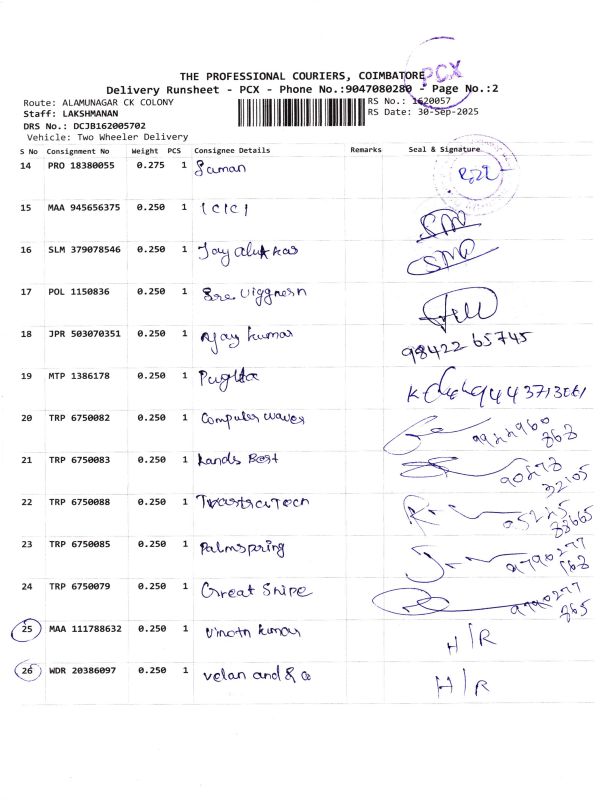 THE PROFESSIONAL COURIERS, COIMBATORE
PCX
Delivery Runsheet - PCX - Phone No.:9047080280 - Page No.:2
Route: ALAMUNAGAR CK COLONY RS No.: 1620057
Staff: LAKSHMANAN RS Date: 30-Sep-2025
DRS No.: DCJB162005702
Vehicle: Two Wheeler Delivery
S No Consignment No Weight PCS Consignee Details Remarks Seal & Signature
14 PRO 18380055 0.275 1 Saman
15 MAA 945656375 0.250 1 ICICI
16 SLM 379078546 0.250 1 Joy alukkas
17 POL 1150836 0.250 1 Sre Viggnesh
18 JPR 503070351 0.250 1 Ajay kumar 98422 65745
19 MTP 1386178 0.250 1
20 TRP 6750082 0.250 1 Computer waves
21 TRP 6750083 0.250 1 Lands Best
22 TRP 6750088 0.250 1
23 TRP 6750085 0.250 1 Palmspring
24 TRP 6750079 0.250 1 Great Snipe
25 MAA 111788632 0.250 1 Vinoth kumar H/R
26 WDR 20386097 0.250 1 velan and & H/R